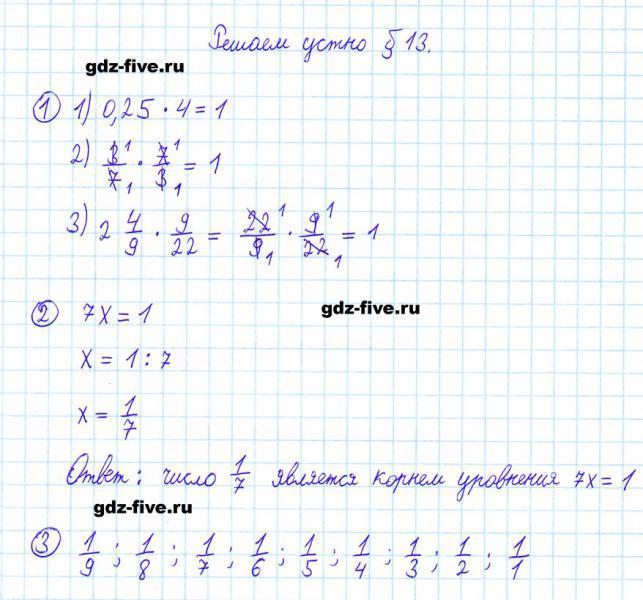 Решаем устно § 13.
gdz-five.ru
① 1) 0,25 · 4 = 1
2) 3/7 · 7/3 = 1
3) 2 4/9 · 9/22 = 22/9 · 9/22 = 1
② 7x = 1
gdz-five.ru
x = 1 : 7
x = 1/7
Ответ: число 1/7 является корнем уровнения 7x = 1
gdz-five.ru
③ 1/9 ; 1/8 ; 1/7 ; 1/6 ; 1/5 ; 1/4 ; 1/3 ; 1/2 ; 1/1